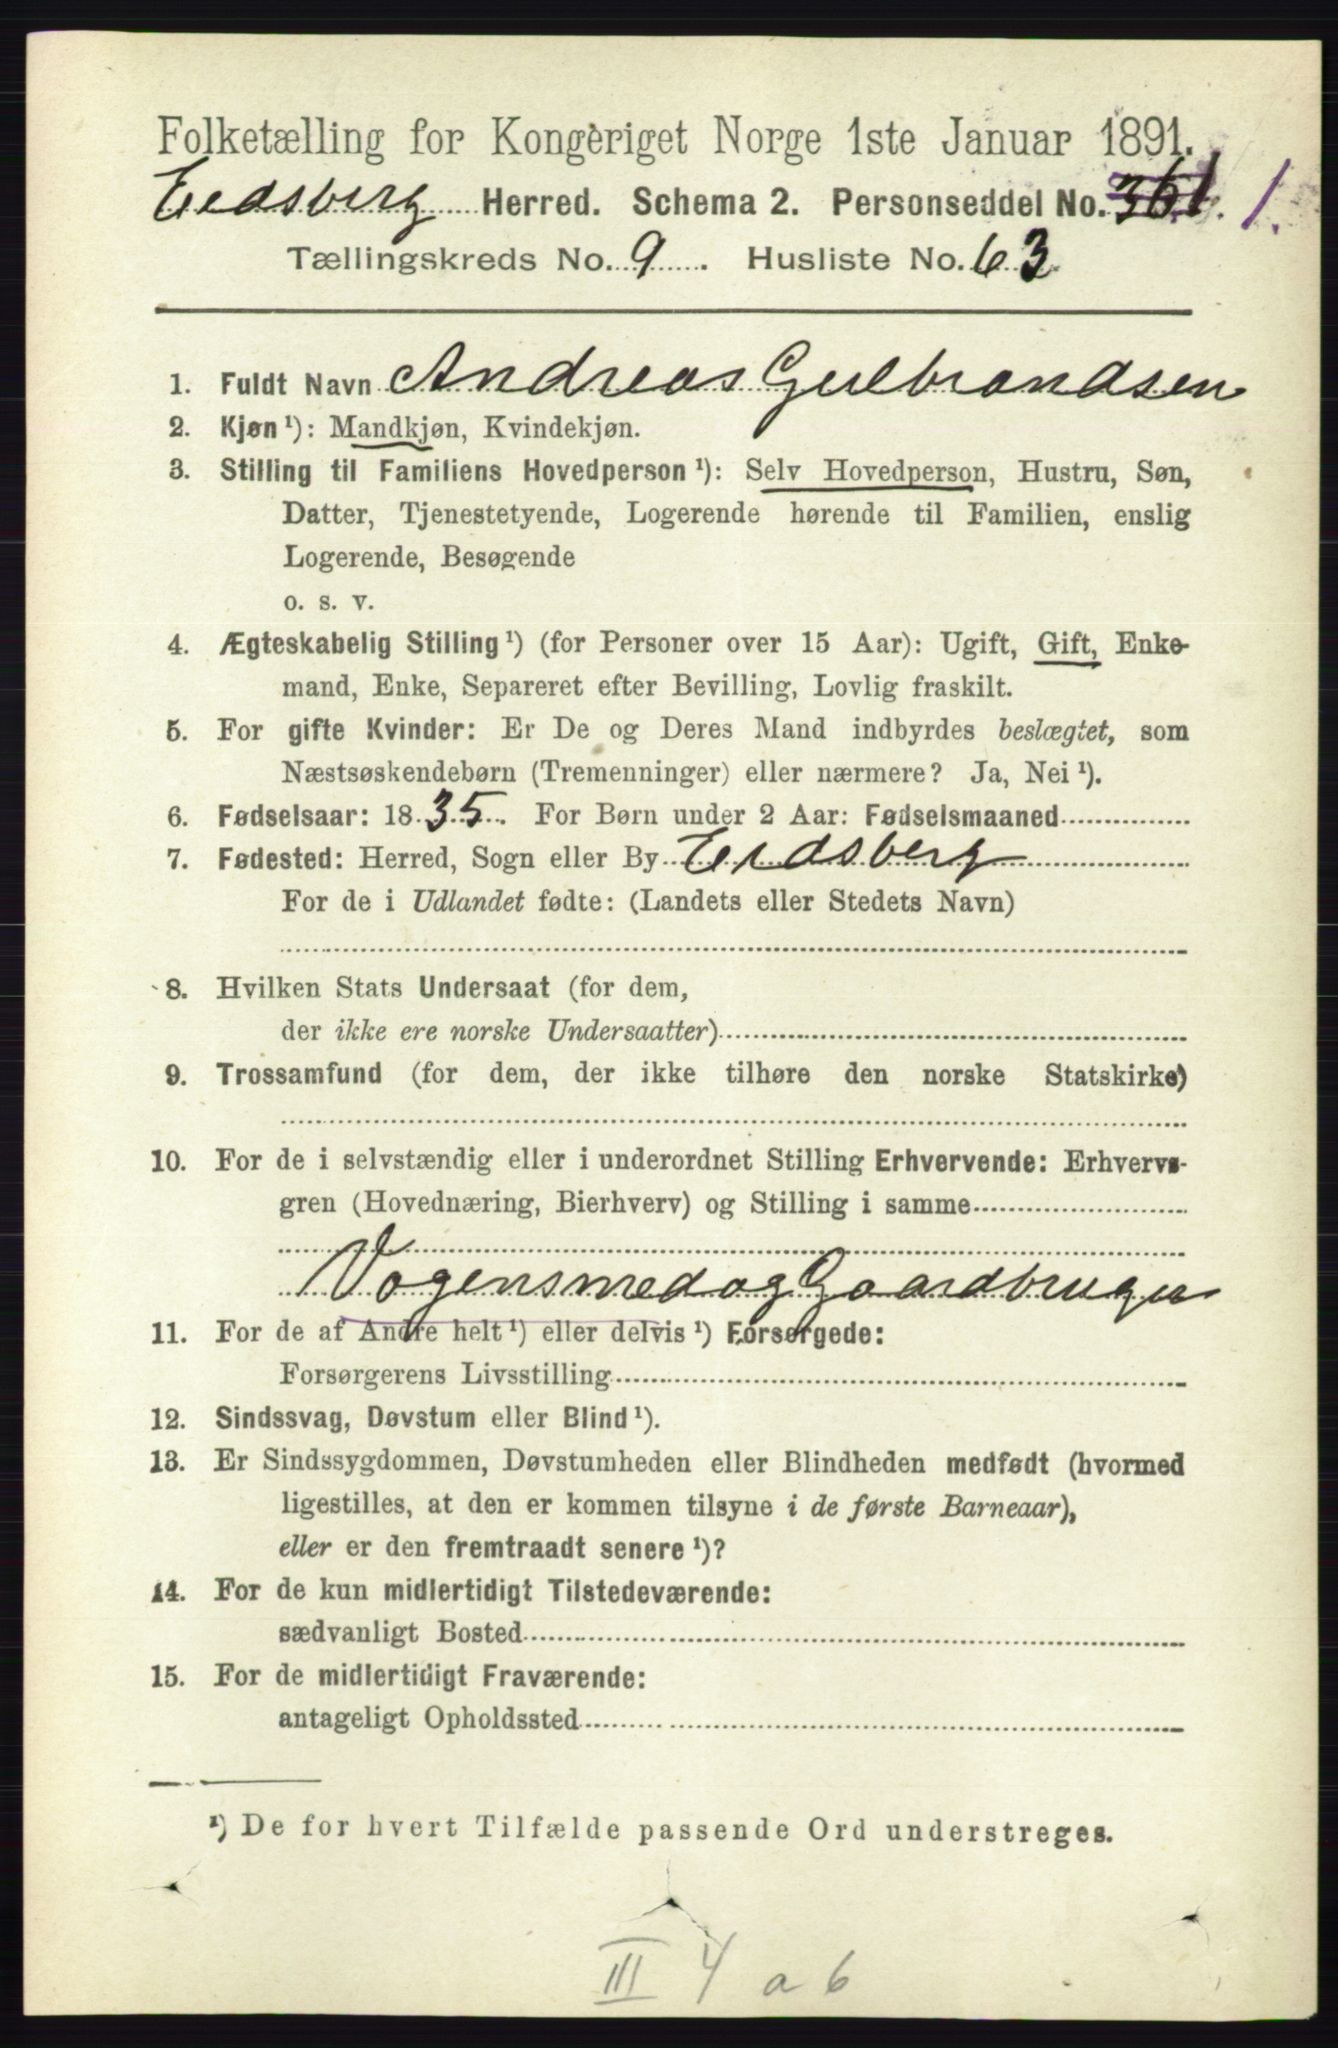 Folketælling for Kongeriget Norge 1ste Januar 1891.
Eidsberg Herred. Schema 2. Personseddel No. 361. 1.
Tællingskreds No. 9. Husliste No. 63.
1. Fuldt Navn Andreas Gulbrandsen
2. Kjøn ¹): Mandkjøn, Kvindekjøn.
3. Stilling til Familiens Hovedperson ¹): Selv Hovedperson, Hustru, Søn,
Datter, Tjenestetyende, Logerende hørende til Familien, enslig
Logerende, Besøgende
o. s. v.
4. Ægteskabelig Stilling ¹) (for Personer over 15 Aar): Ugift, Gift, Enke-
mand, Enke, Separeret efter Bevilling, Lovlig fraskilt.
5. For gifte Kvinder: Er De og Deres Mand indbyrdes beslægtet, som
Næstsøskendebørn (Tremenninger) eller nærmere? Ja, Nei ¹).
6. Fødselsaar: 1835. For Børn under 2 Aar: Fødselsmaaned
7. Fødested: Herred, Sogn eller By Eidsberg
For de i Udlandet fødte: (Landets eller Stedets Navn)
8. Hvilken Stats Undersaat (for dem,
der ikke ere norske Undersaatter)
9. Trossamfund (for dem, der ikke tilhøre den norske Statskirke)
10. For de i selvstændig eller i underordnet Stilling Erhvervende: Erhvervs-
gren (Hovednæring, Bierhverv) og Stilling i samme
Vogensmed og Gaardbruger
11. For de af Andre helt ¹) eller delvis ¹) Forsørgede:
Forsørgerens Livsstilling
12. Sindssvag, Døvstum eller Blind ¹).
13. Er Sindssygdommen, Døvstumheden eller Blindheden medfødt (hvormed
ligestilles, at den er kommen tilsyne i de første Barneaar),
eller er den fremtraadt senere ¹)?
14. For de kun midlertidigt Tilstedeværende:
sædvanligt Bosted
15. For de midlertidigt Fraværende:
antageligt Opholdssted
¹) De for hvert Tilfælde passende Ord understreges.
III 4 a b